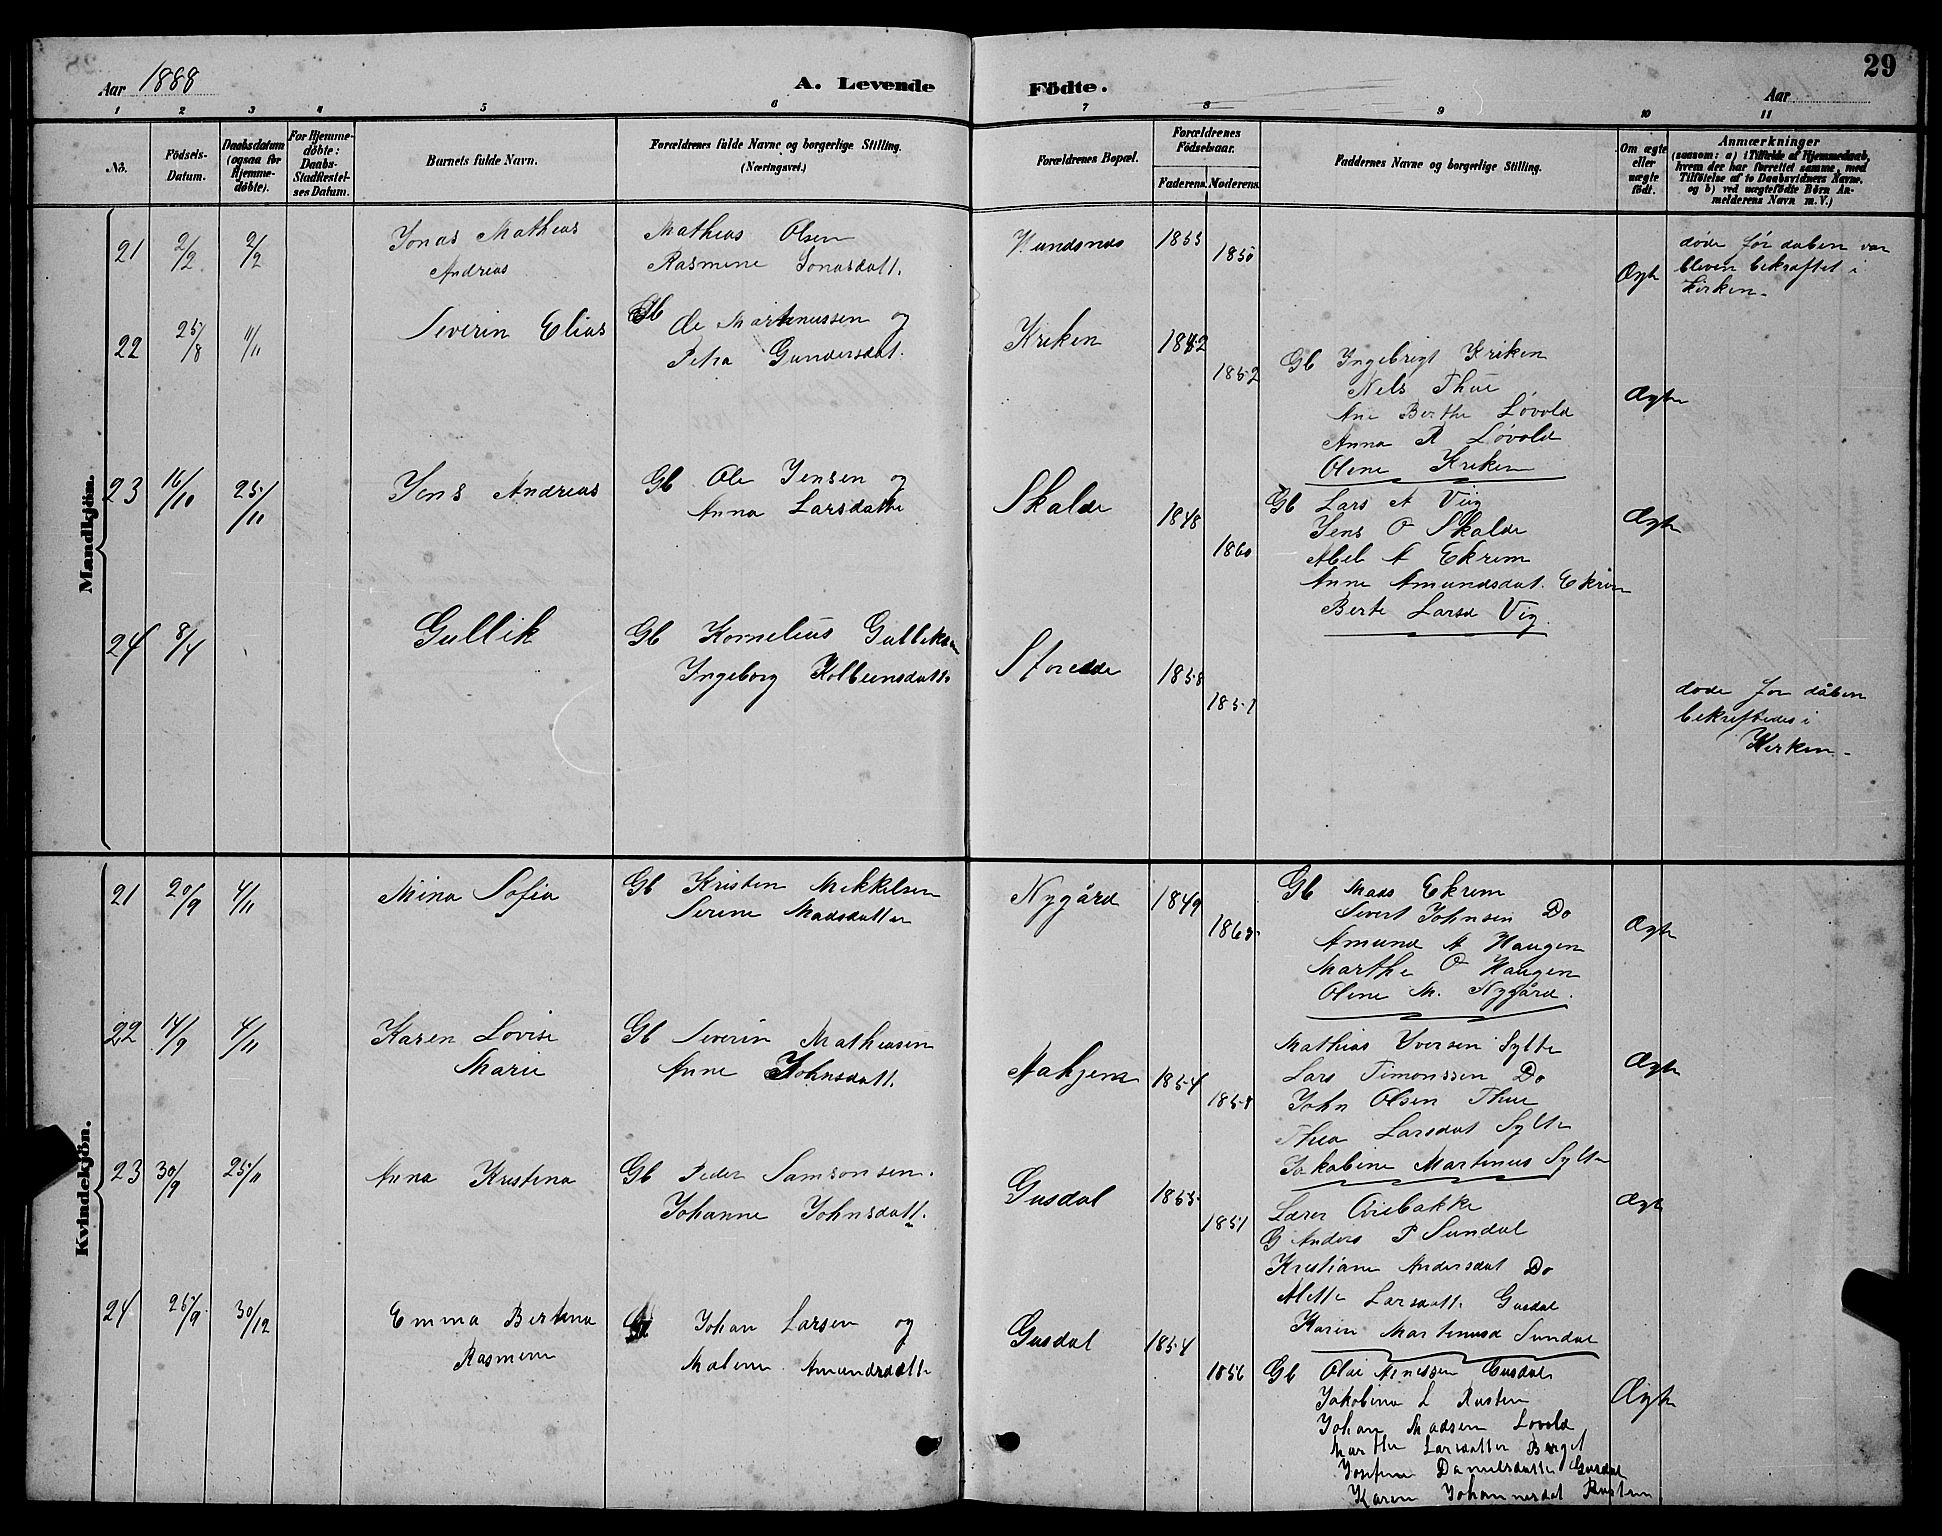 29
Aar 1888
A. Levende Födte.
Aar
1 2 3 4 5 6 7 8 9 10 11
No.
Födsels-Datum.
Daabsdatum (ogsaa for Hjemme-döbte).
For Hjemme-döbte: Daabs-Stadfæstel-ses Datum.
Barnets fulde Navn.
Forældrenes fulde Navne og borgerlige Stilling. (Næringsvei.)
Forældrenes Bopæl.
Forældrenes Födselsaar.
Faderens. Moderens.
Faddernes Navne og borgerlige Stilling.
Om ægte eller uægte födt.
Anmærkninger
(saasom: a) i Tilfælde af Hjemmedaab,
hvem der har forrettet samme, med
Tilföielse af to Daabsvidners Navne.
og b) ved uægtefödte Börn An-
melderens Navn m. V.)
Mandkjön.
21 2/2 2/2 Jonas Mathias
Andreas
Mathias Olsen
Rasmine Jonasdatt.
1855
1850
Ægte
døde før daben var
bleven bekræftet i
Kirken
22 25/8 11/11 Severin Elias
Gb Ole Martinussen og
Petra Gundersdat.
Kriken 1842
1852
Gb Ingebrigt Kriken
Nels Thue
Ane Berthe Løvold
Anna R Løvold
Oline Kriken
Ægte
23 16/10 25/11 Jens Andreas
Gb Ole Jensen og
Anna Larsdatte
Skalde 1848
1860
Gb Lars A Viig
Jens O Skalde
Abel A Ekrem
Anne Amundsdat. Ekrem
Berte Larsd Vig.
Ægte
24 8/4 Gullik
Gb Kornelius Gulliksen
Ingeborg Kolbeinsdatt.
1858
1857
døde før dåben
bekræftedes i
Kirken
Kvindekjön.
21 20/9 4/11 Mina Sofia
Gb Kristen Mekkelsen
Serine Madsdatter
Nygård 1849
Gb Mads Ekrem
Sivert Johnsen Do
Amund A Haugen
Marthe O Haugen
Oline M. Nygård.
Ægte
22 14/9 4/11 Karen Lovise
Marie
Gb Severin Mathiasen
Anne Johnsdatt.
1854
1858
Mathias Iversen Sylte
Lars Timonssen Do
John Olsen Thue
Thea Larsdat Sylte
Jakobine Martinus Sylte
Ægte
23 30/9 25/11 Anna Kristina
Gb Peder Samsonsen.
Johanne Johnsdatt.
Gusdal 1855
1851
Lærer Aviebakke
G Anders P Sundal
Kristiane Andersdat Do
Mette Larsdatt. Gusdal
Karen Martinusd Sundal
Ægte
24 26/9 30/12 Emma Bertina
Rasmine
Johan Larsen og
Malene Amundsdatte
Gusdal 1854
1856
Gb Olai Arnessen Gusdal
Jakobina L Rusten
Johan Madsen Løvold
Marthe Larsdatter Berget
Josefine Danielsdatte Gusdal
Karen Johannesdat Rusten
Ægte